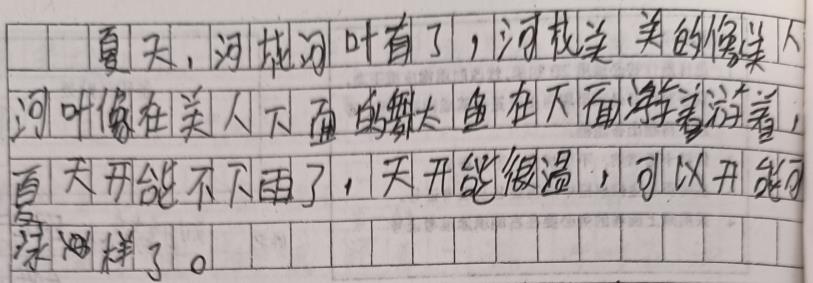 夏天，河找河叶有了，河找美美的像美人
河叶像在美人下面的舞大鱼在下面游着游着，
夏天开能不下雨了，天开能很温，可以开能河
深样了。